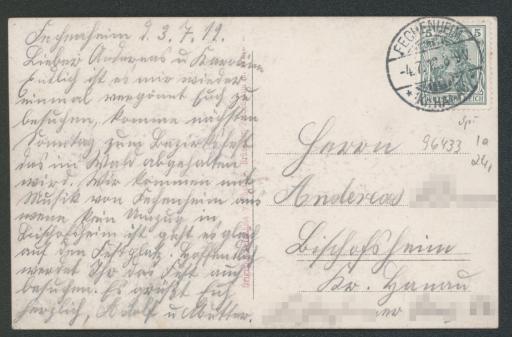 Fechenheim d. 3. 7. 12.
Lieber Andereas u Karoline
Entlich ist es mir wieder
einmal vergönnt Euch zu
besuchen, komme nächsten
Sonntag zum Bezirksfest
das im Wald abgehalten
wird. Wir kommen mit
Musik von Fechenheim aus
wenn kein Umzug in
Bischofsheim ist geht es gleich
auf den Festplatz. Hoffentlich
werdet Ihr das Fest auch
besuchen. Es grüßt Euch
herzlich, Adolf u Mutter.
FECHENHEIM
5
REICH
Herrn
96433
Andereas
Bischofsheim
Kr. Hanau